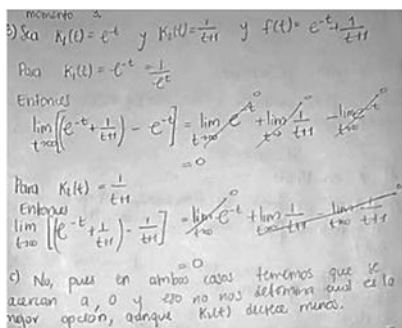 momento 1
b) Sea K₁(t) = e^-t y K₂(t) = 1/(t+1) y f(t) = e^-t + 1/(t+1)
Para K₁(t) = e^-t = 1/e^t
Entonces
lim t→∞ [(e^-t + 1/(t+1)) - e^-t] = lim t→∞ e^-t 0 + lim t→∞ 1/(t+1) 0 - lim t→∞ e^-t 0
= 0
Para K₂(t) = 1/(t+1)
Entonces
lim t→∞ [(e^-t + 1/(t+1)) - 1/(t+1)] = lim t→∞ e^-t 0 + lim t→∞ 1/(t+1) - lim t→∞ 1/(t+1) 0
= 0
c) No, pues en ambos casos tenemos que se
acercan a, 0 y eso no nos determina cual es la
mejor opción, aunque K₂(t) decrece menos.